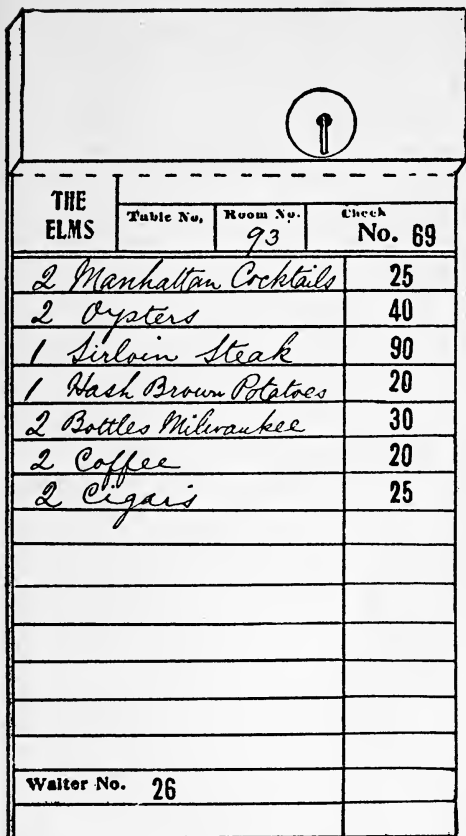 THE
ELMS
Table No. Room No. Check
93 No. 69
2 Manhattan Cocktails 25
2 Oysters 40
1 Sirloin Steak 90
1 Hash Brown Potatoes 20
2 Bottles Milwaukee 30
2 Coffee 20
2 Cigars 25
Waiter No. 26